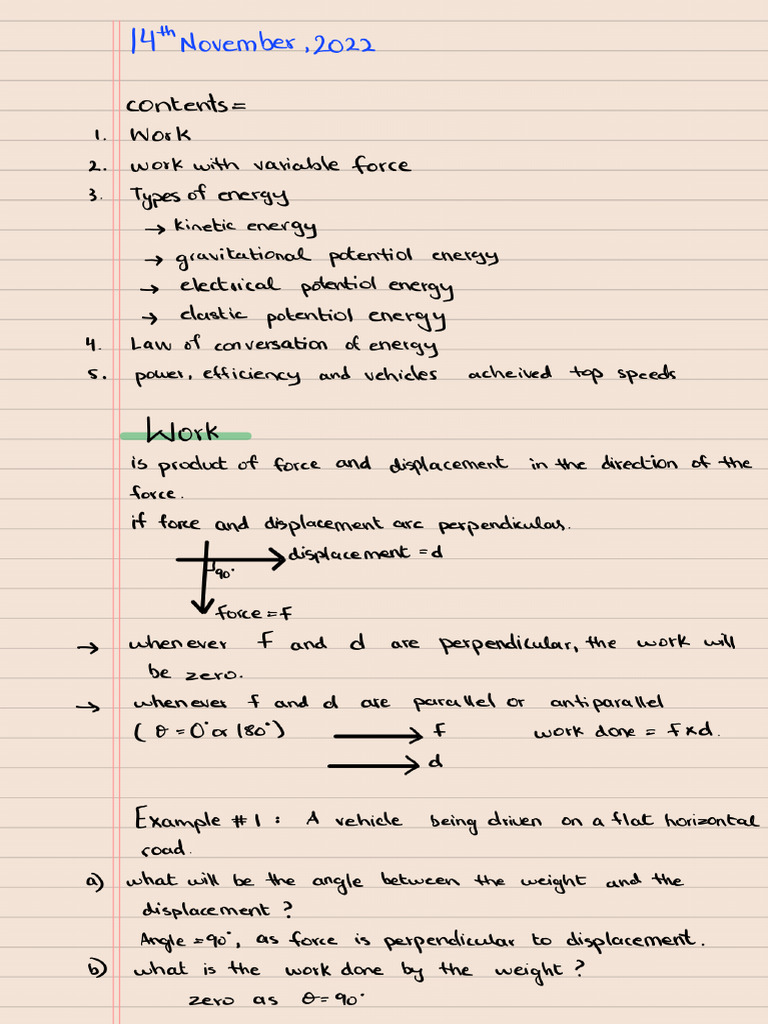 14th November, 2022
contents =
1. Work
2. work with variable force
3. Types of energy
→ kinetic energy
→ gravitational potential energy
→ electrical potential energy
→ elastic potential energy
4. Law of conversation of energy
5. power, efficiency and vehicles acheived top speeds
Work
is product of force and displacement in the direction of the
force.
if force and displacement are perpendicular.
displacement = d
90°
force = f
→ whenever f and d are perpendicular, the work will
be zero.
→ whenever f and d are parallel or antiparallel
( θ = 0° or 180° ) f work done = f × d.
d
Example # 1 : A vehicle being driven on a flat horizontal
road.
a) what will be the angle between the weight and the
displacement ?
Angle = 90°, as force is perpendicular to displacement.
b) what is the work done by the weight ?
zero as θ = 90°